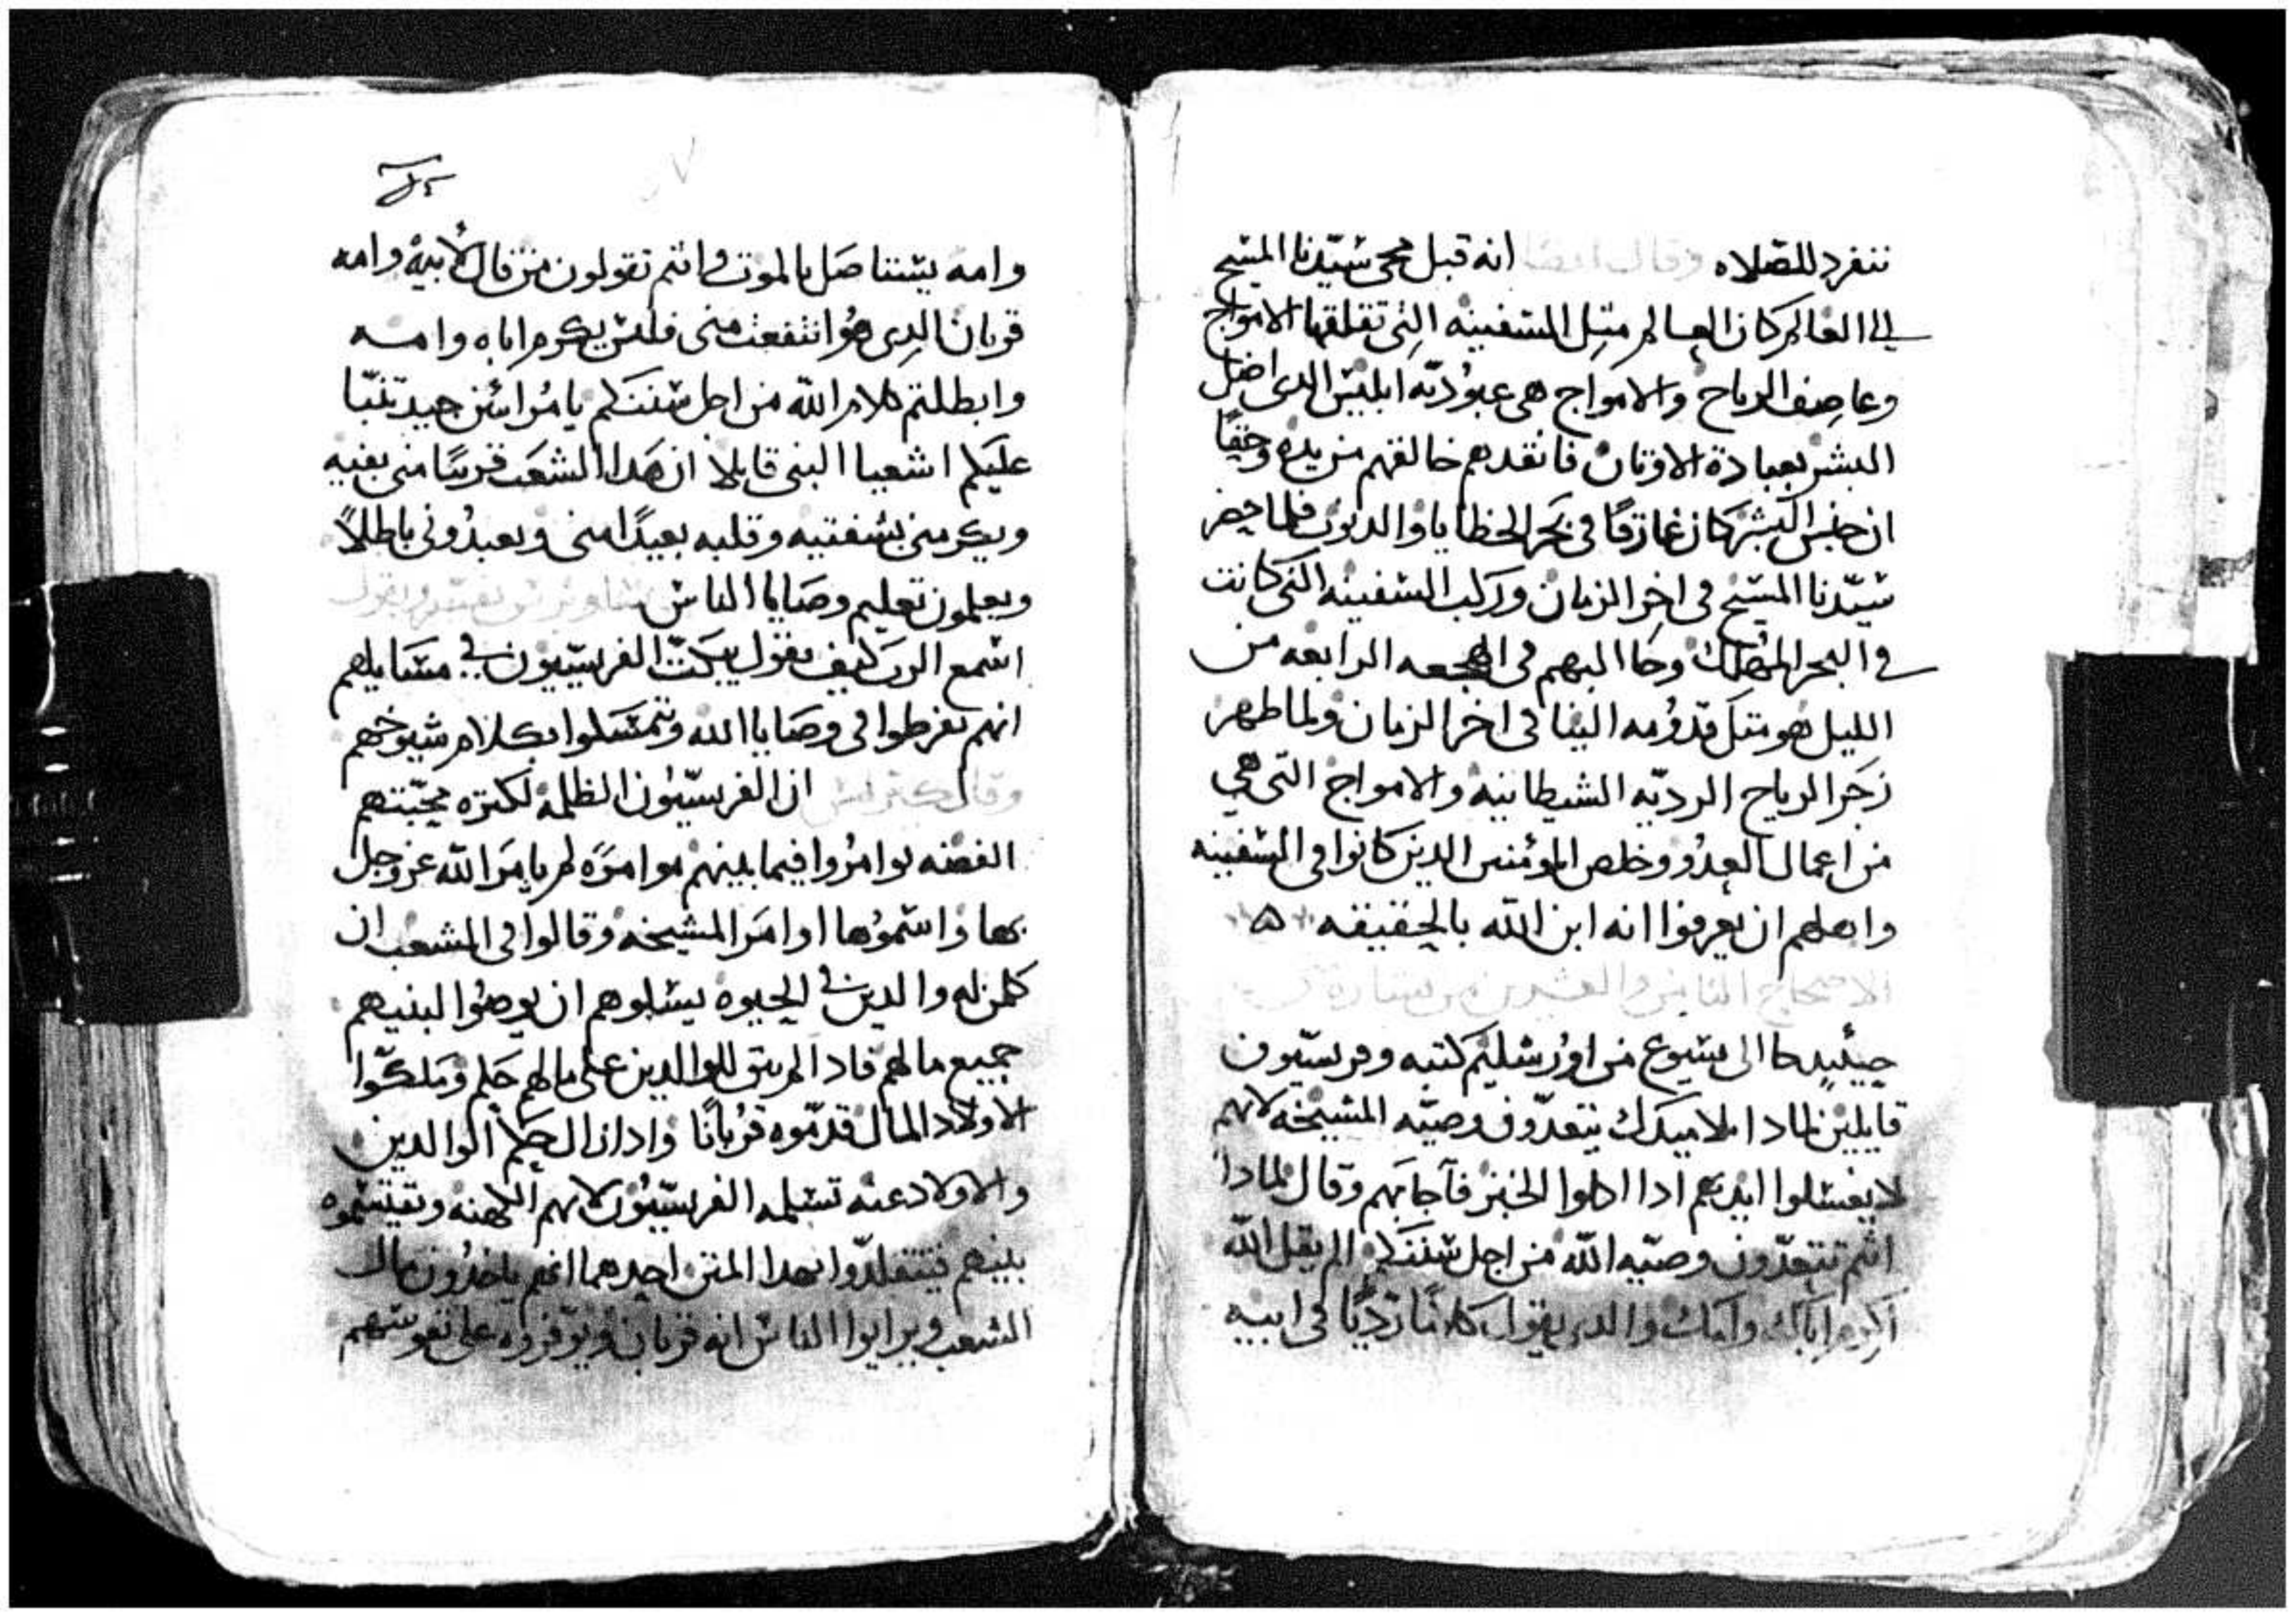 ننفرد للصّلاه وقال ايضا انه قبل مجى سيّدنا المسيح
الى العالم كان العالم متل السفينه التى تقلقها الامواج
وعاصف الرياح والامواج هى عبوديّة ابليس الدى اضل
البشر بعبادة الاوتان فانقدهم خالقهم من يده وحقًا
ان جنس البشر كان غارقًا فى بحر الخطايا والديون فلما حضر
سيّدنا المسيح فى اخر الزمان وركب السفينه التى كانت
فى البحر المهلك وجا اليهم فى الهجعه الرابعه من
الليل هو متل قدومه الينا فى اخر الزمان ولما ظهر
زجر الرياح الرديّه الشيطانيه والامواج التى هى
من اعمال العدو وخلص المومنين الدين كانوا فى السفينه
واهلهم ان يعرفوا انه ابن الله بالحقيقه
الاصحاح التامن والعشرين من بشارة
حينيد جا الى يسوع من اورشليم كتبه وفريسيّون
قايلين لمادا تلاميدك يتعدّون وصيّه المشيخه لانهم
لا يغسلوا ايديهم ادا اكلوا الخبز فاجابهم وقال لمادا
انتم تتعدّون وصيّه الله من اجل سننكم الم يقل الله
اكرم اباك وامك والدى يقول كلامًا رديًا فى ابيه
وامه يستاصل بالموت وانتم تقولون من قال لابيه وامه
قربان الدى هو انتفعت منى فليس يكرم اباه وامه
وابطلتم كلام الله من اجل سننكم يا مراين جيد تنبّا
عليكم اشعيا النبى قايلا ان هدا الشعب قريبًا منى بفيه
ويكرمنى بشفتيه وقلبه بعيدًا منى ويعبدونى باطلاً
ويعلمون تعليم وصايا الناس
اسمع الرب كيف يقول يبكت الفريسيّون فى مسايلهم
انهم يفرطوا فى وصايا الله وتمسكوا بكلام شيوخهم
وقال ان الفريسيّون الظلمه لكتره محبّتهم
الفضه توامروا فيما بينهم موامرة لم يامر الله عز وجل
بها واسموها اوامر المشيخه وقالوا فى الشعب ان
كلمن له والدين فى الحيوه يسلوهم ان يوصوا لبنيهم
جميع مالهم فادا لم يبق للوالدين على مالهم حكم وملكوا
الاولاد المال قدّموه قربانًا وادا زال حكم الوالدين
والاولاد عنه تسلمه الفريسيّون لانهم الكهنه وتقسموه
بينهم فيتقلدّوا بهدا المتن احدهما انهم ياخدون مال
الشعب ويرايوا الناس انه قربان ويوفروه على نفوسهم